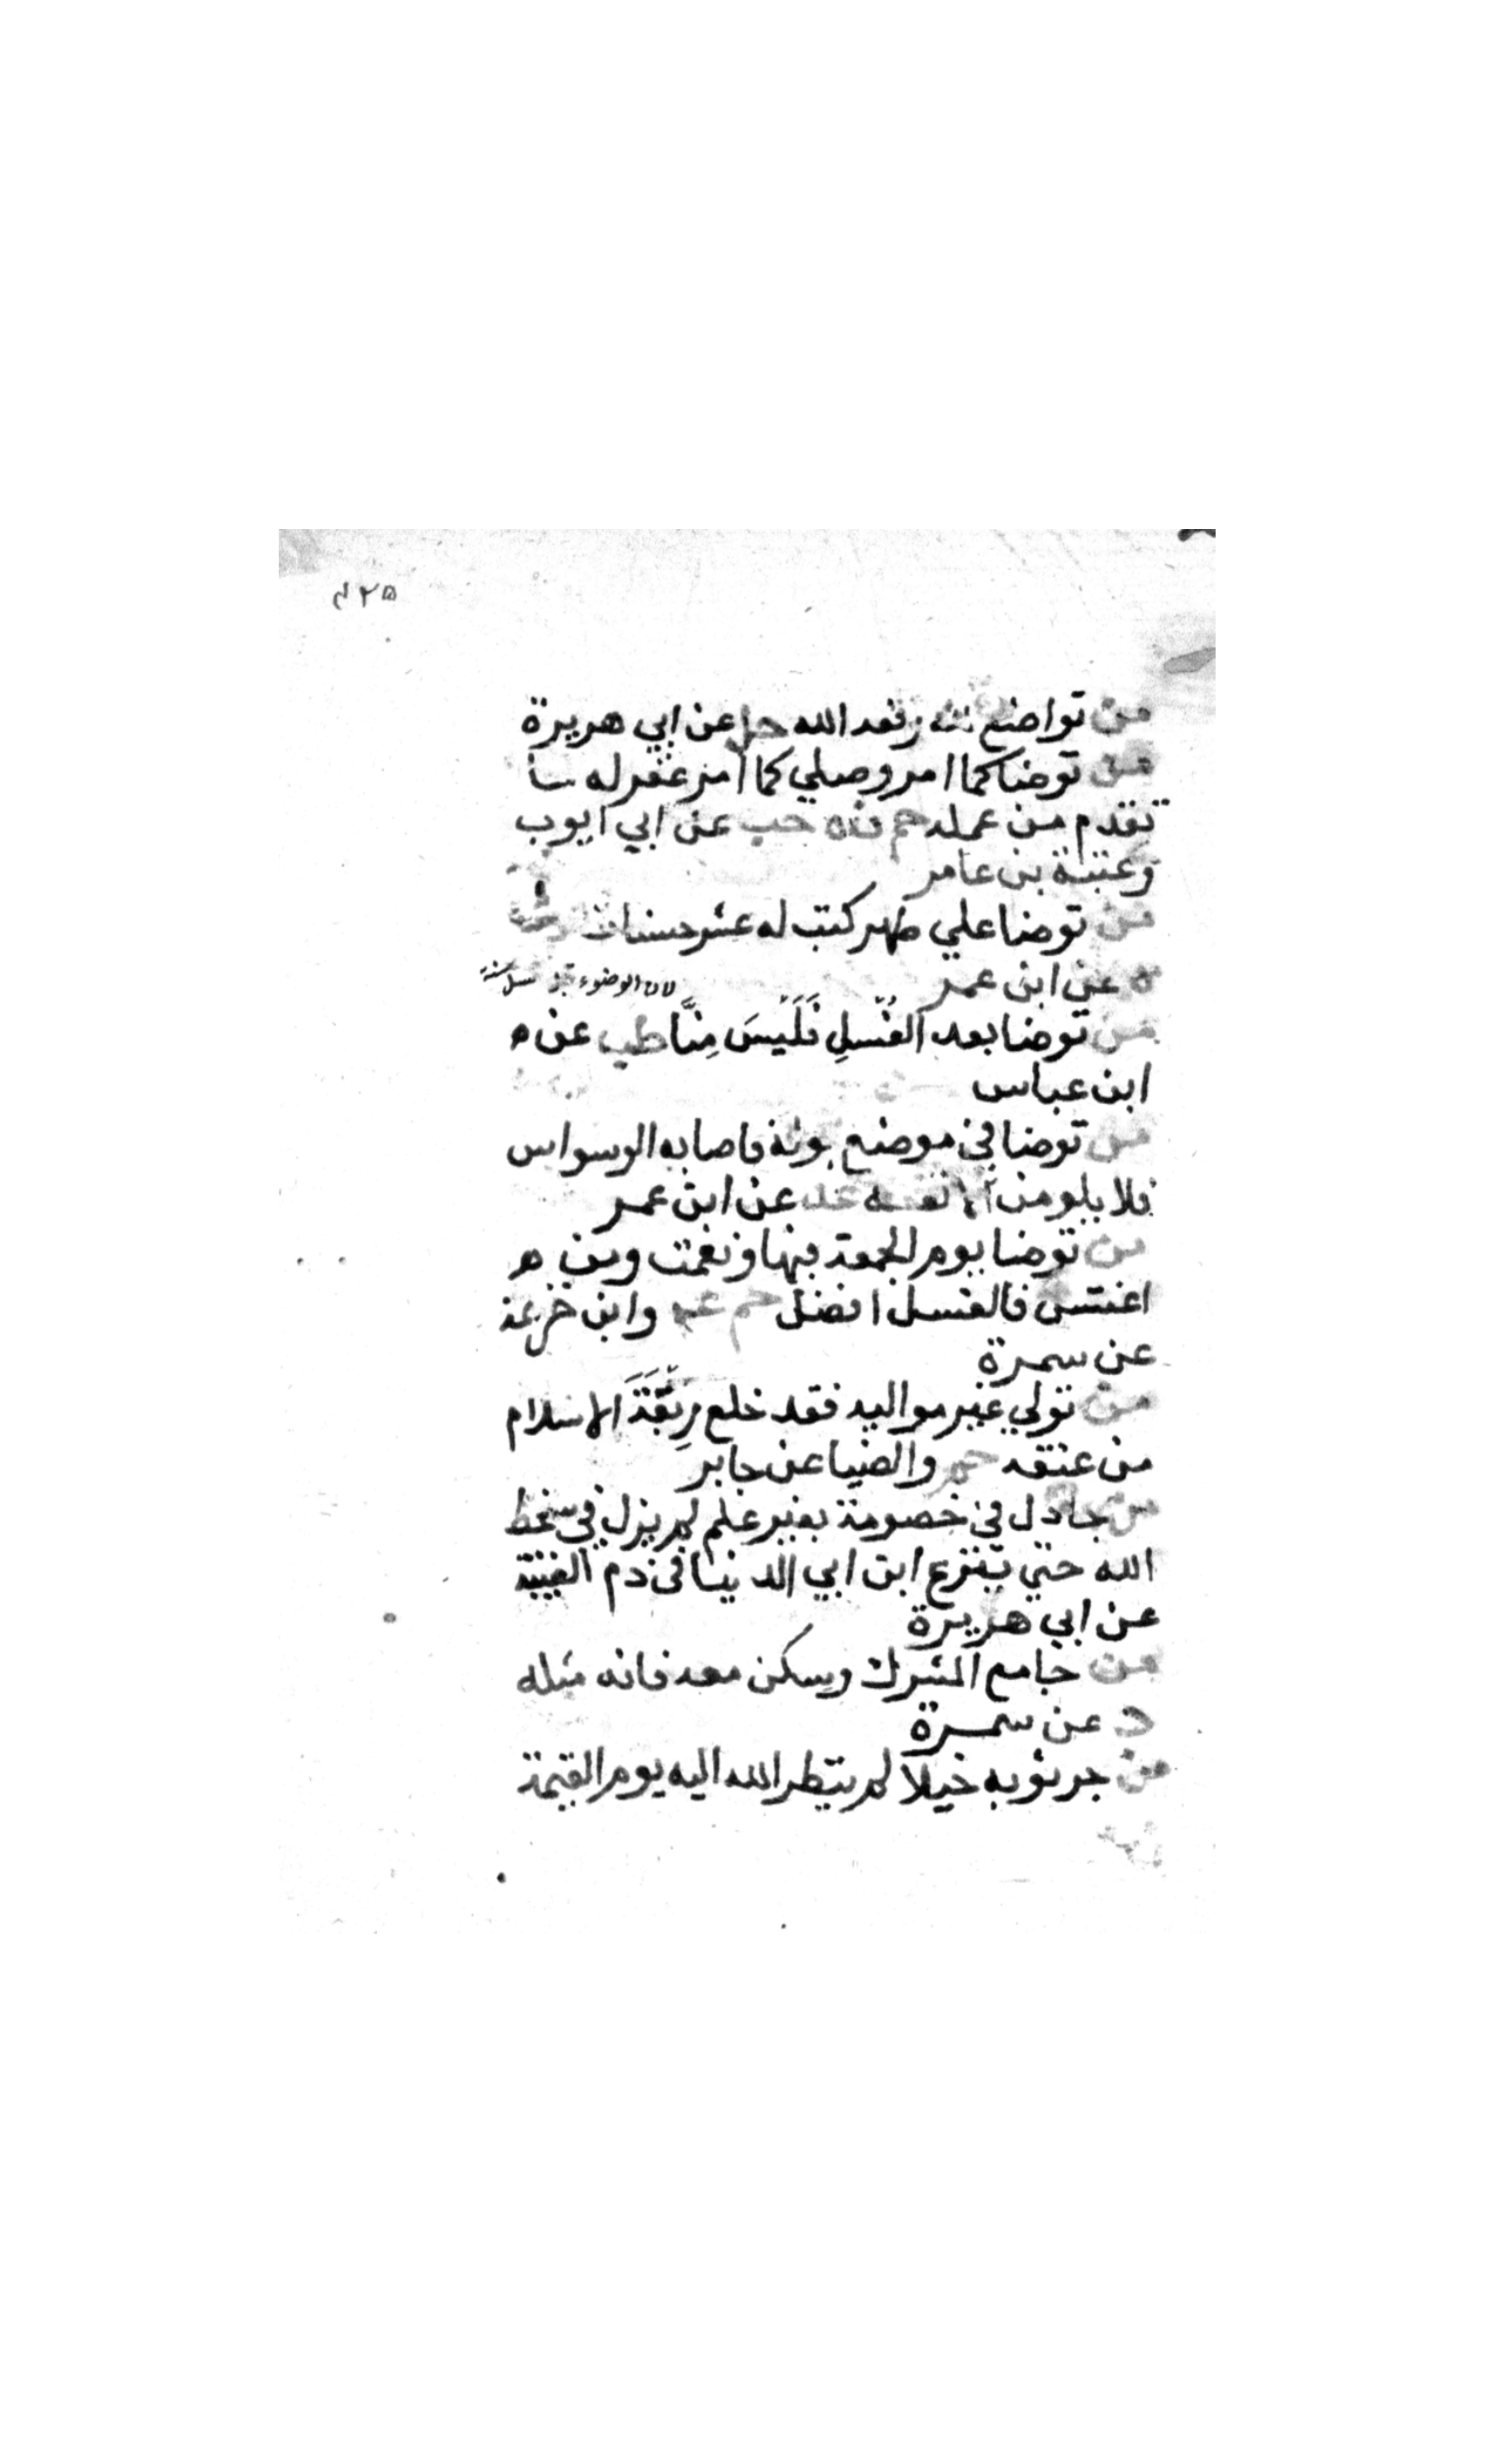 من تواضع لله رفعه الله حل عن ابي هريرة
من توضا كما امر وصلي كما امر غفر له ما
تقدم من عمله حم ن ه حب عن ابي ايوب
وعقبة بن عامر
من توضا علي طهر كتب له عشر حسنات د ت
ه عن ابن عمر
لان الوضوء قبل الغسل سنة
من توضا بعد الغُسْلِ فَلَيْسَ مِنَّا طب عن ه
ابن عباس
من توضا في موضع بوله فاصابه الوسواس
فلا يلومن الا نفسه عد عن ابن عمر
من توضا يوم الجمعة فبها ونعمت ومن ه
اغتسل فالغسل افضل حم ع وابن خزيمة
عن سمرة
من تولي غير مواليه فقد خلع رِبْقَةَ الاسلام
من عنقه حم والضيا عن جابر
من جادل في خصومة بغير علم لم يزل في سخط
الله حتي ينزع ابن ابي الدنيا في ذم الغيبة
عن ابي هريرة
من جامع المشرك وسكن معه فانه مثله
د عن سمرة
من جر ثوبه خيلا لم ينظر الله اليه يوم القيمة